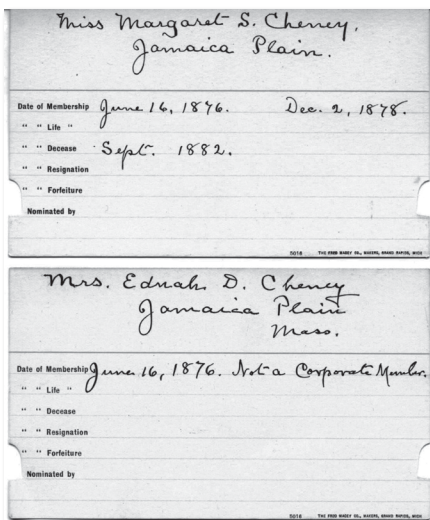 Miss Margaret S. Cheney,
Jamaica Plain.
Date of Membership June 16, 1876. Dec. 2, 1878.
" " Life "
" " Decease Sept. 1882.
" " Resignation
" " Forfeiture
Nominated by
5018 THE FRED MACEY CO., MAKERS, GRAND RAPIDS, MICH.
Mrs. Ednah D. Cheney
Jamaica Plain
Mass.
Date of Membership June 16, 1876. Not a Corporate Member.
" " Life "
" " Decease
" " Resignation
" " Forfeiture
Nominated by
5018 THE FRED MACEY CO., MAKERS, GRAND RAPIDS, MICH.